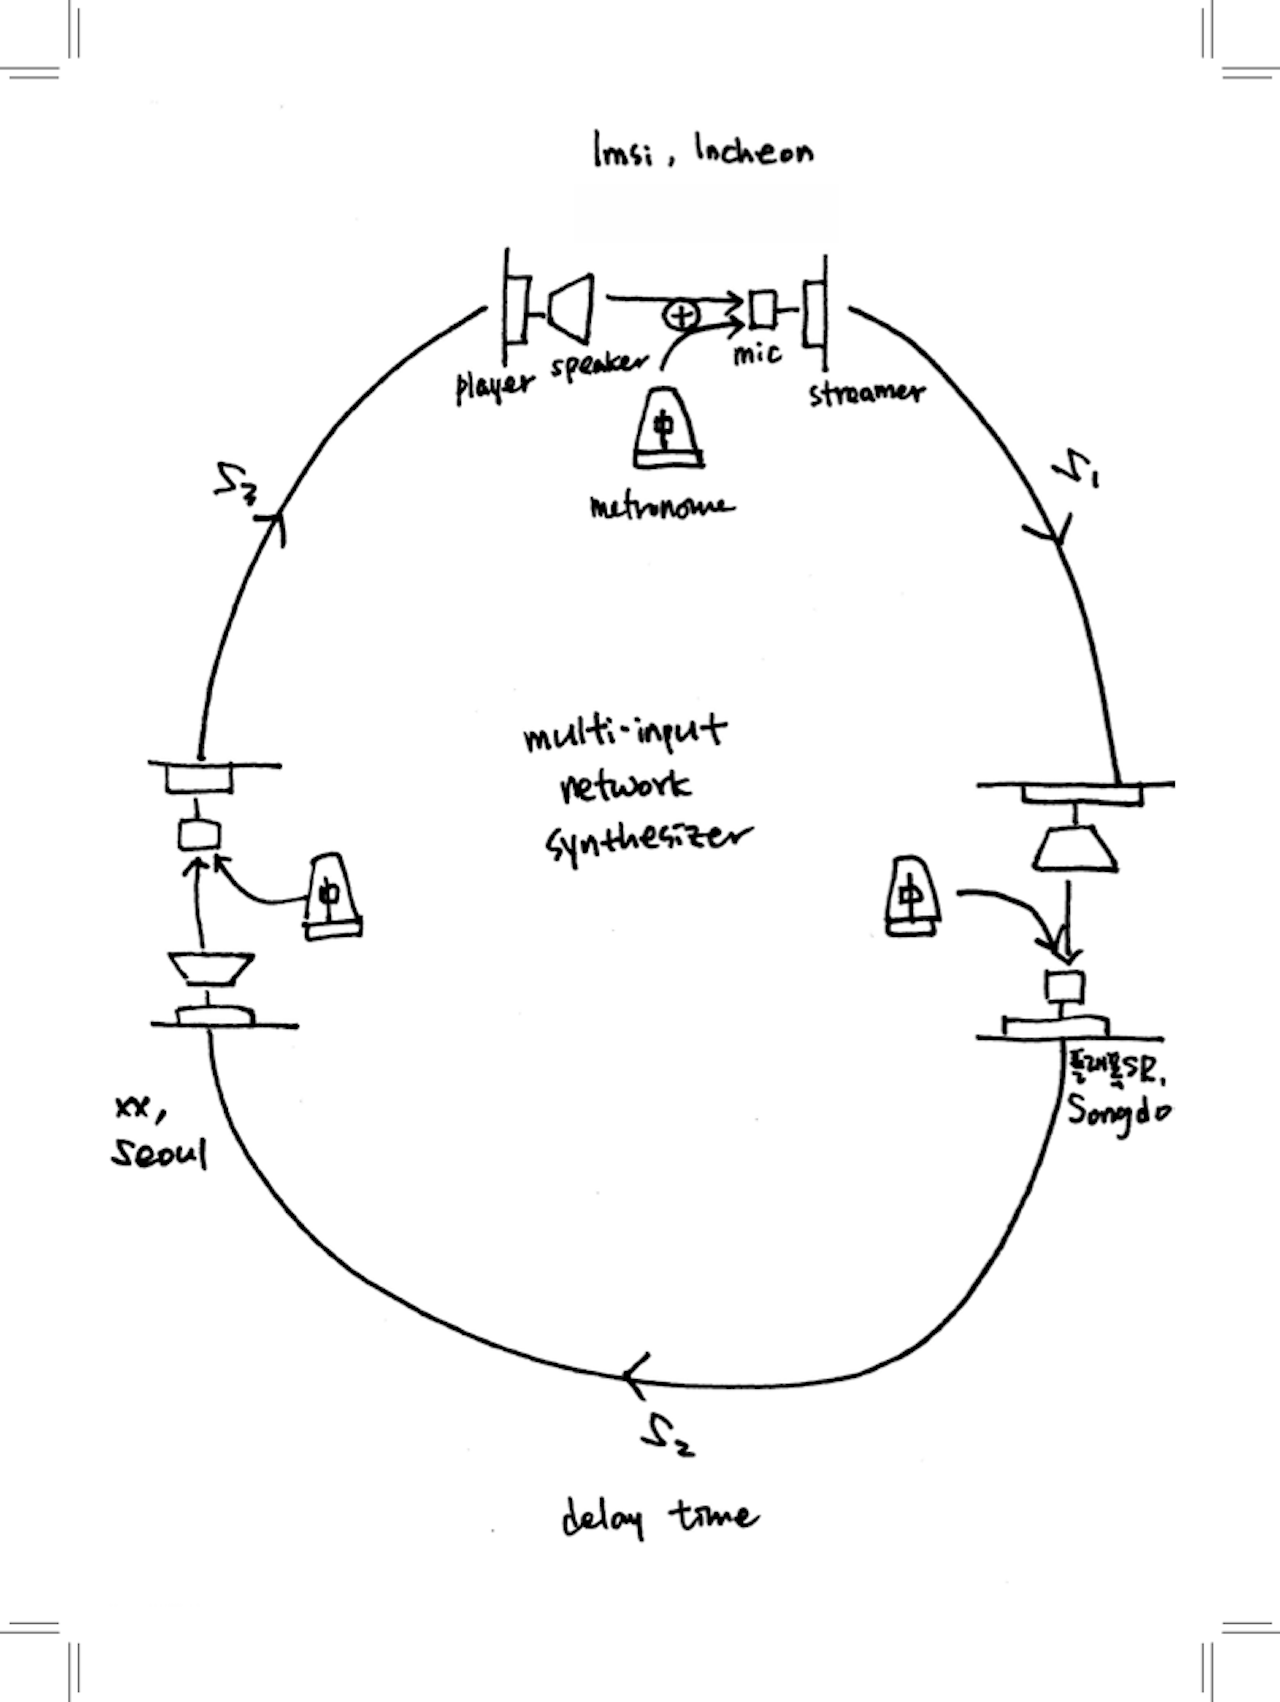 Imsi, Incheon
player
speaker
mic
streamer
metronome
S3
S1
multi-input
network
synthesizer
xx,
Seoul
SR,
Songdo
S2
delay time